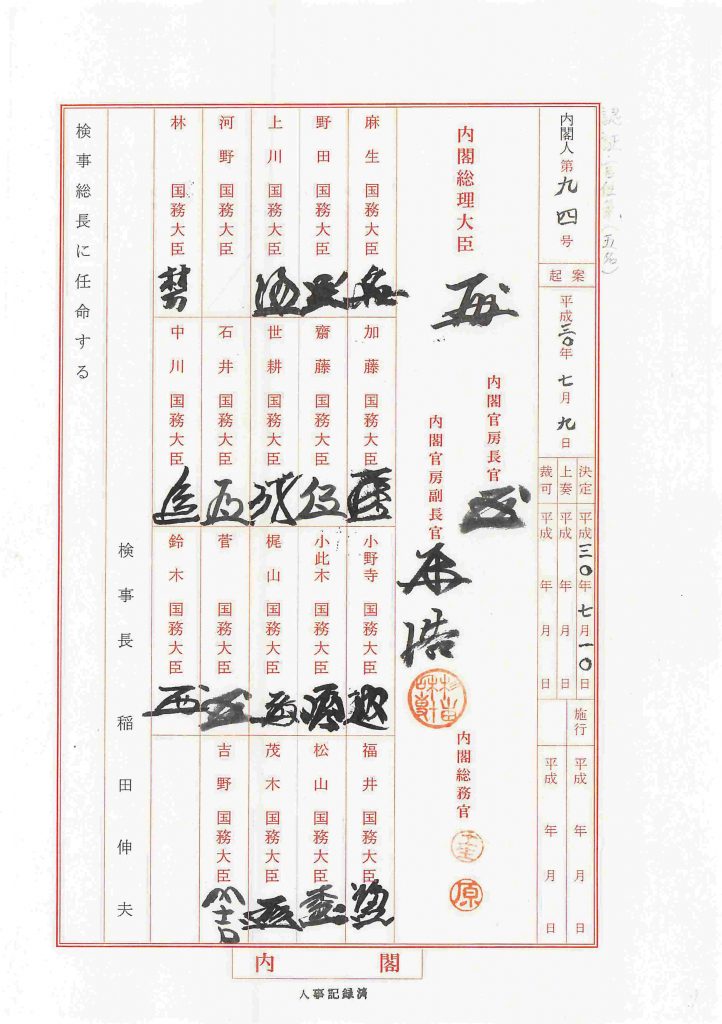 内閣人第九四号
起案
平成三〇年七月九日
決定 平成三〇年七月一〇日
上奏 平成 年 月 日
裁可 平成 年 月 日
施行 平成 年 月 日
平成 年 月 日
内閣総理大臣
内閣官房長官
内閣官房副長官
内閣総務官
原
麻生 国務大臣
野田 国務大臣
上川 国務大臣
河野 国務大臣
林 国務大臣
加藤 国務大臣
齋藤 国務大臣
世耕 国務大臣
石井 国務大臣
中川 国務大臣
小野寺 国務大臣
小此木 国務大臣
梶山 国務大臣
菅 国務大臣
鈴木 国務大臣
福井 国務大臣
松山 国務大臣
茂木 国務大臣
吉野 国務大臣
検事長 稲田伸夫
検事総長に任命する
内閣
人事記録済